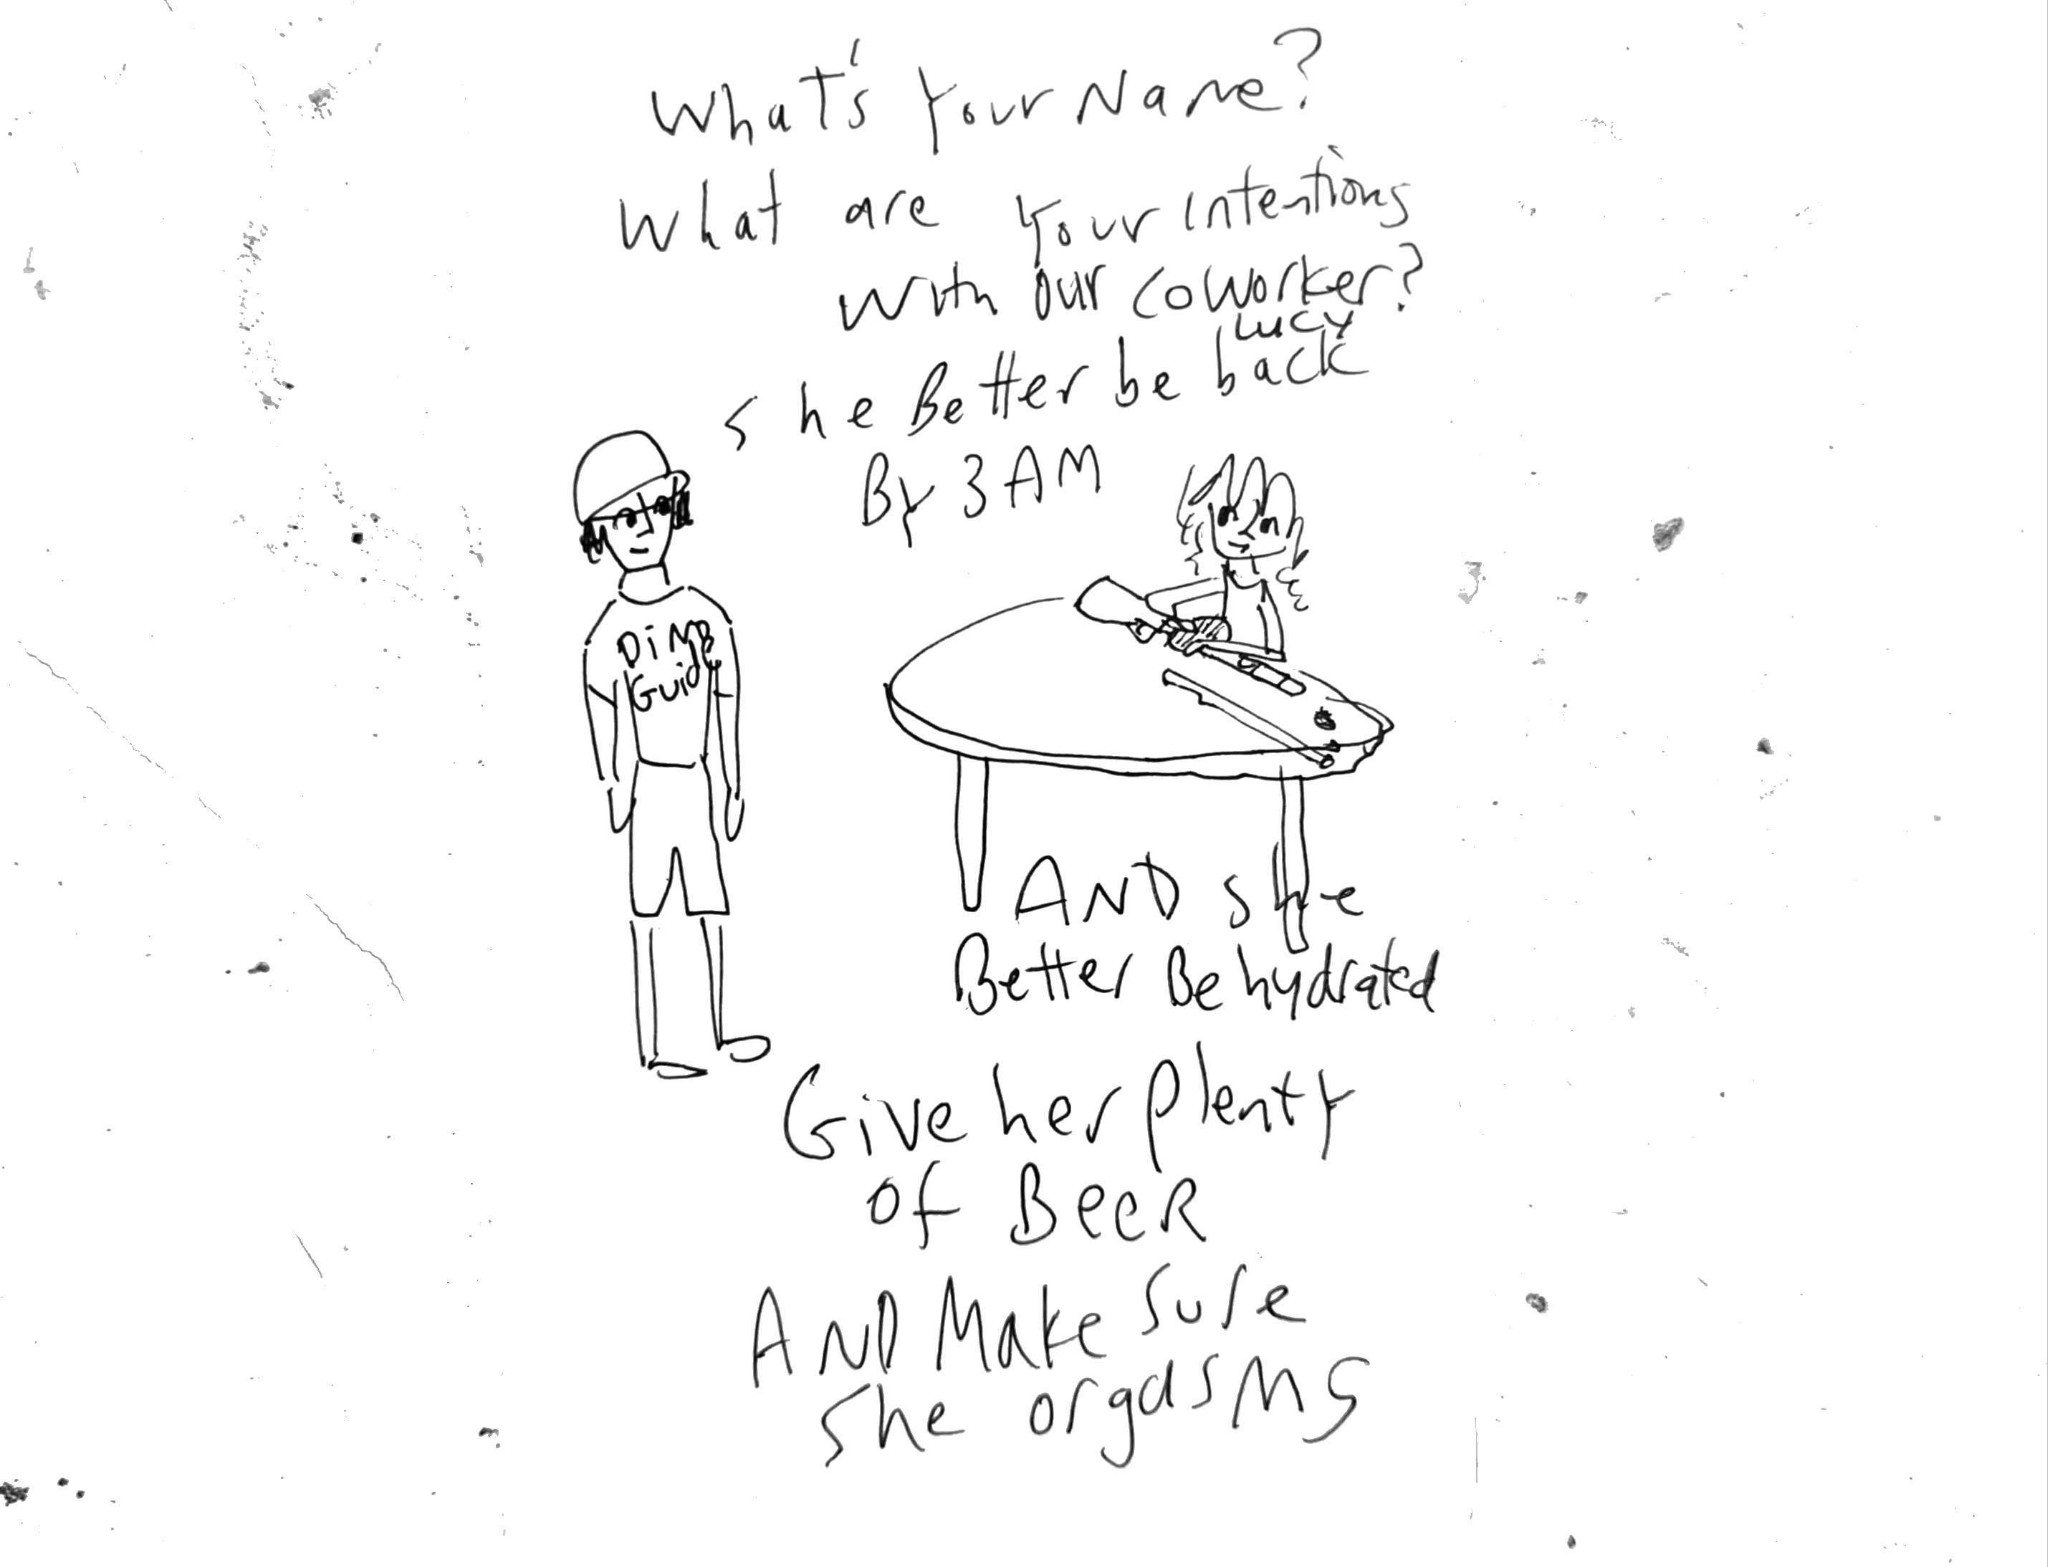 What's Your Name?
What are Your Intentions
With our coworker?
Lucy
she Better be back
By 3 AM
DiMB
Guid
AND she
Better Be hydrated
Give her plenty
of BeeR
AND Make sure
she orgasms